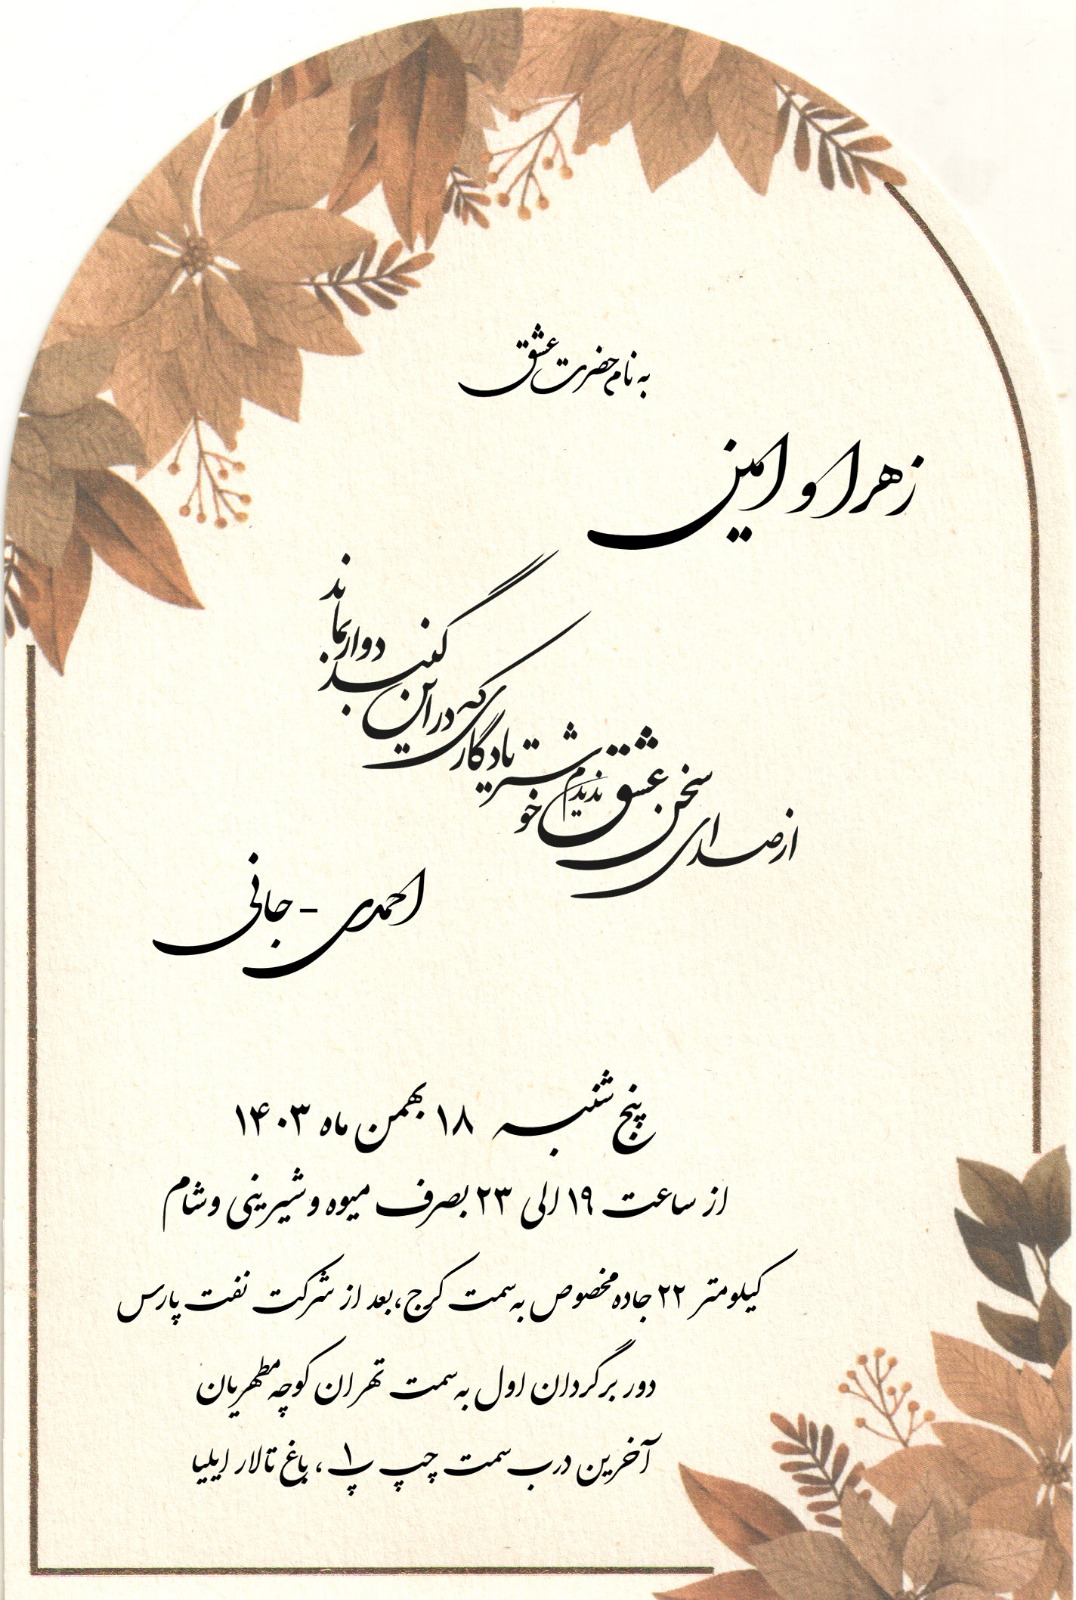 به نام حضرت عشق
زهرا و امین
از صدای سخن عشق ندیدم خوشتر
یادگاری که در این گنبد دوار بماند
احمدی - جانی
پنج شنبه ۱۸ بهمن ماه ۱۴۰۳
از ساعت ۱۹ الی ۲۳ بصرف میوه و شیرینی و شام
کیلومتر ۲۲ جاده مخصوص به سمت کرج، بعد از شرکت نفت پارس
دور برگردان اول به سمت تهران کوچه مطهریان
آخرین درب سمت چپ پ ۱ ، باغ تالار ایلیا